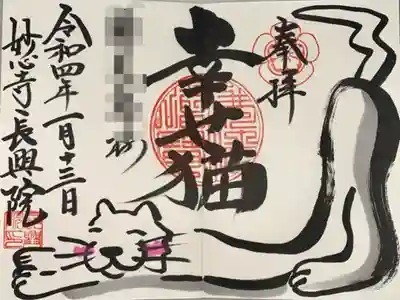 奉拝
幸せ猫
様
令和四年一月十三日
妙心寺長興院